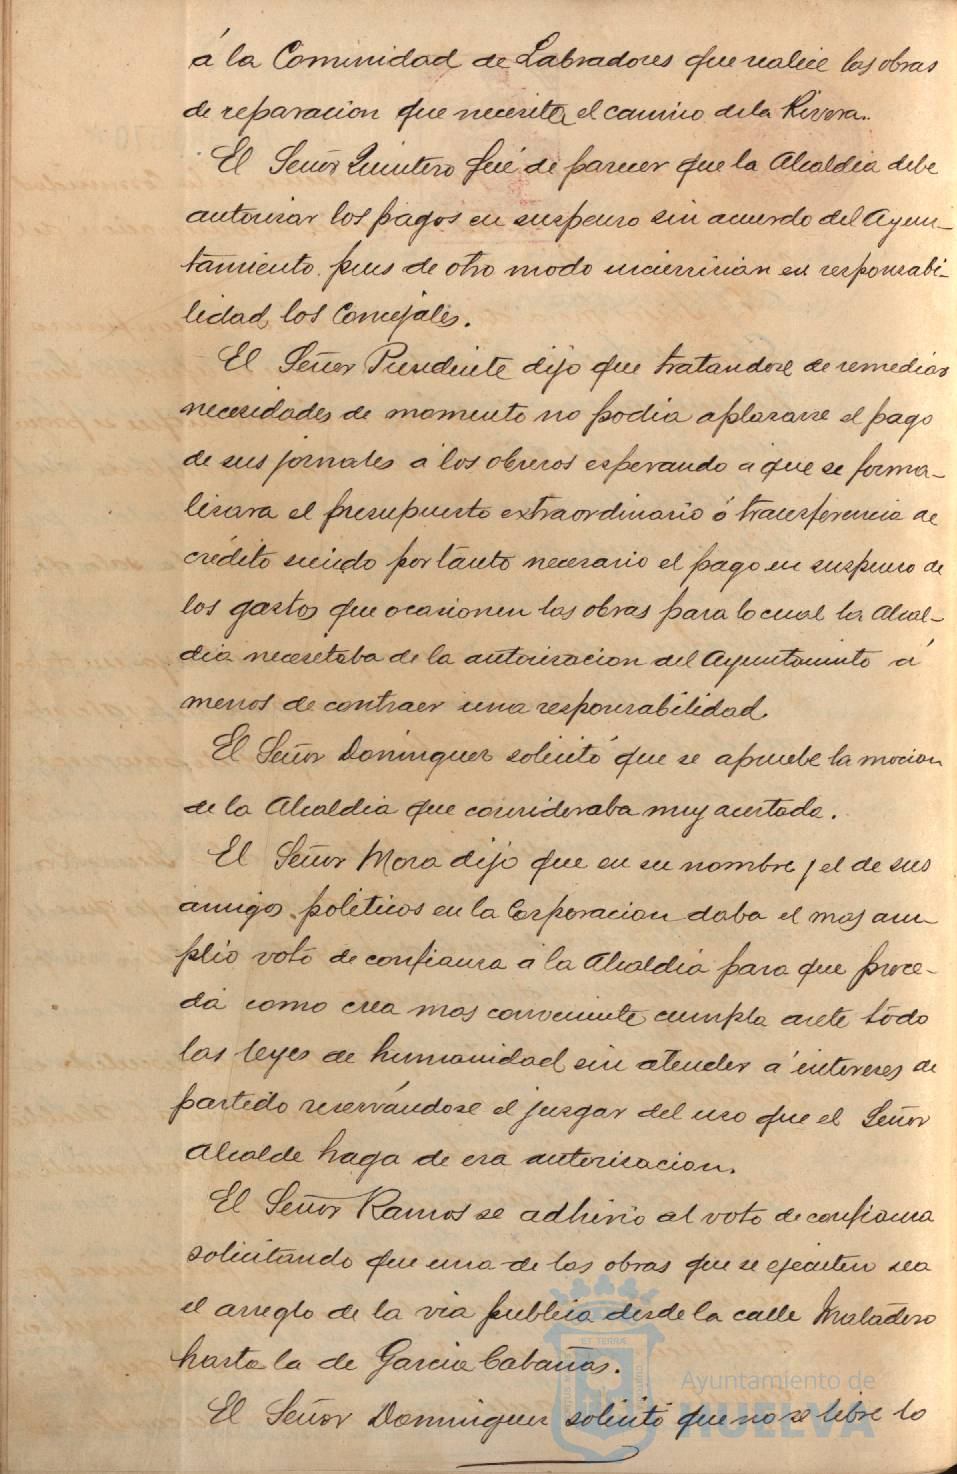 á la Cominidad de Labradores que realice las obras
de reparacion que necesite el camino de la Rivera.
El Señor Quintero fué de parecer que la Alcaldia debe
autorizar los pagos en suspenso sin acuerdo del Ayun-
tamiento pues de otro modo incurririan en responsabi-
lidad los Concejales.
El Señor Presidente dijo que tratandose de remediar
necesidades de momento no podia aplazarse el pago
de sus jornales a los obreros esperando a que se forma-
lizara el presupuesto extraordinario ó transferencia de
crédito siendo por tanto necesario el pago en suspenso de
los gastos que ocasionen las obras para lo cual la Alcal-
dia necesetaba de la autorizacion del Ayuntamiento á
menos de contraer una responsabilidad.
El Señor Dominguez solicitó que se apruebe la mocion
de la Alcaldia que consideraba muy acertada.
El Señor Mora dijo que en su nombre y el de sus
amigos politicos en la Corporacion daba el mas am
plio voto de confianza a la Alcaldia para que proce-
da como crea mas conveniente cumpla ante todo
las leyes de humanidad sin atender a intereses de
partido reservándose el juzgar del uso que el Señor
Alcalde haga de esa autorizacion.
El Señor Ramos se adhirió al voto de confianza
solicitando que una de las obras que se ejecuten sea
el arreglo de la via publica desde la calle Mataderо
hasta la de Garcia Cabañas.
El Señor Dominguez solicitó que no se libre lo
Ayuntamiento de
HUELVA